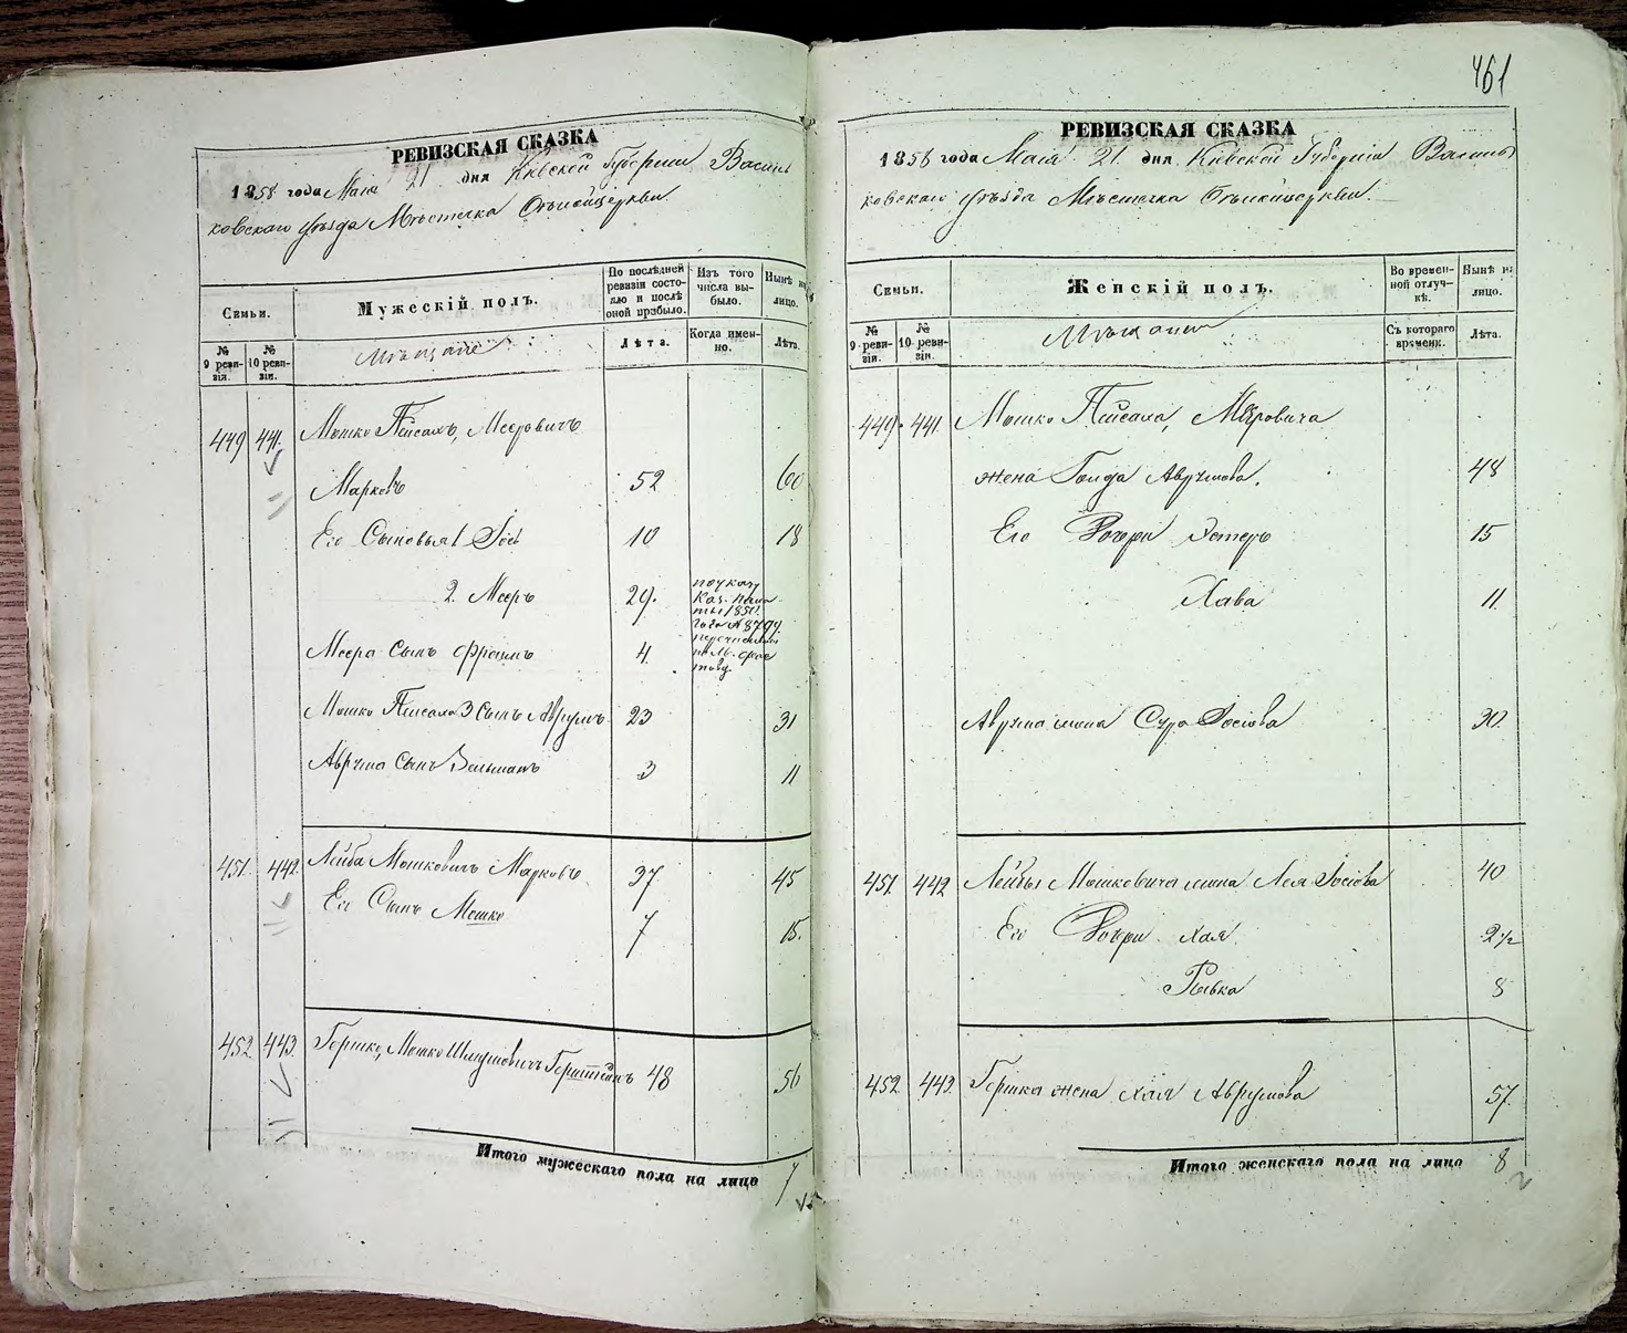 461
РЕВИЗСКАЯ СКАЗКА
1858 года Маія 21 дня Кіевской Губерніи Василь
ковскаго уѣзда Мѣстечка Бѣлойцеркви.
Семьи.
Мужескій полъ.
По послѣдней ревизіи состо-
яло и послѣ оной прибыло.
Изъ того числа вы-
было.
Нынѣ на лицо.
№ 9 реви-
зіи.
№ 10 реви-
зіи.
Мѣщане
Лѣта.
Когда имен-
но.
Лѣта.
449 441. Мошко Пейсахъ, Мееровичъ
Марковъ 52 60
Его Сыновья 1 Іось 10 18
2. Мееръ 29.
Меера Сынъ Фроимъ 4.
по указу
Каз. Пала
ты 1850.
года № 8794
перечислены
по М. Фас
тову.
Мошко Пейсаха 3 Сынъ Аврумъ 23 31
Аврума Сынъ Зельманъ 3 11
451. 442. Лейба Мошковичъ Марковъ 37 45
Его Сынъ Мошко 7 15.
452 443. Гершко, Мошко Шмулевичъ 48 56
Итого мужескаго пола на лицо 7
РЕВИЗСКАЯ СКАЗКА
1858 года Маія 21. дня Кіевской Губерніи Василь
ковскаго уѣзда Мѣстечка Бѣлойцеркви.
Семьи.
Женскій полъ.
Во времен-
ной отлуч-
кѣ.
Нынѣ на
лицо.
№ 9 реви-
зіи.
№ 10 реви-
зіи.
Мѣщане
Съ котораго
времени.
Лѣта.
449. 441. Мошко Пейсаха, Меѣровича
жена Гольда Аврумова. 48
Его Дочери Эстеръ 15
Хава 11.
Аврума жена Сура Іосіова 30.
451. 442 Лейбы Мошковича жена Лея Іосіова 40
Его Дочери Хая 2 1/2
Рывка 8
452 443. Гершка жена Хая Аврумова 57.
Итого женскаго пола на лицо 8